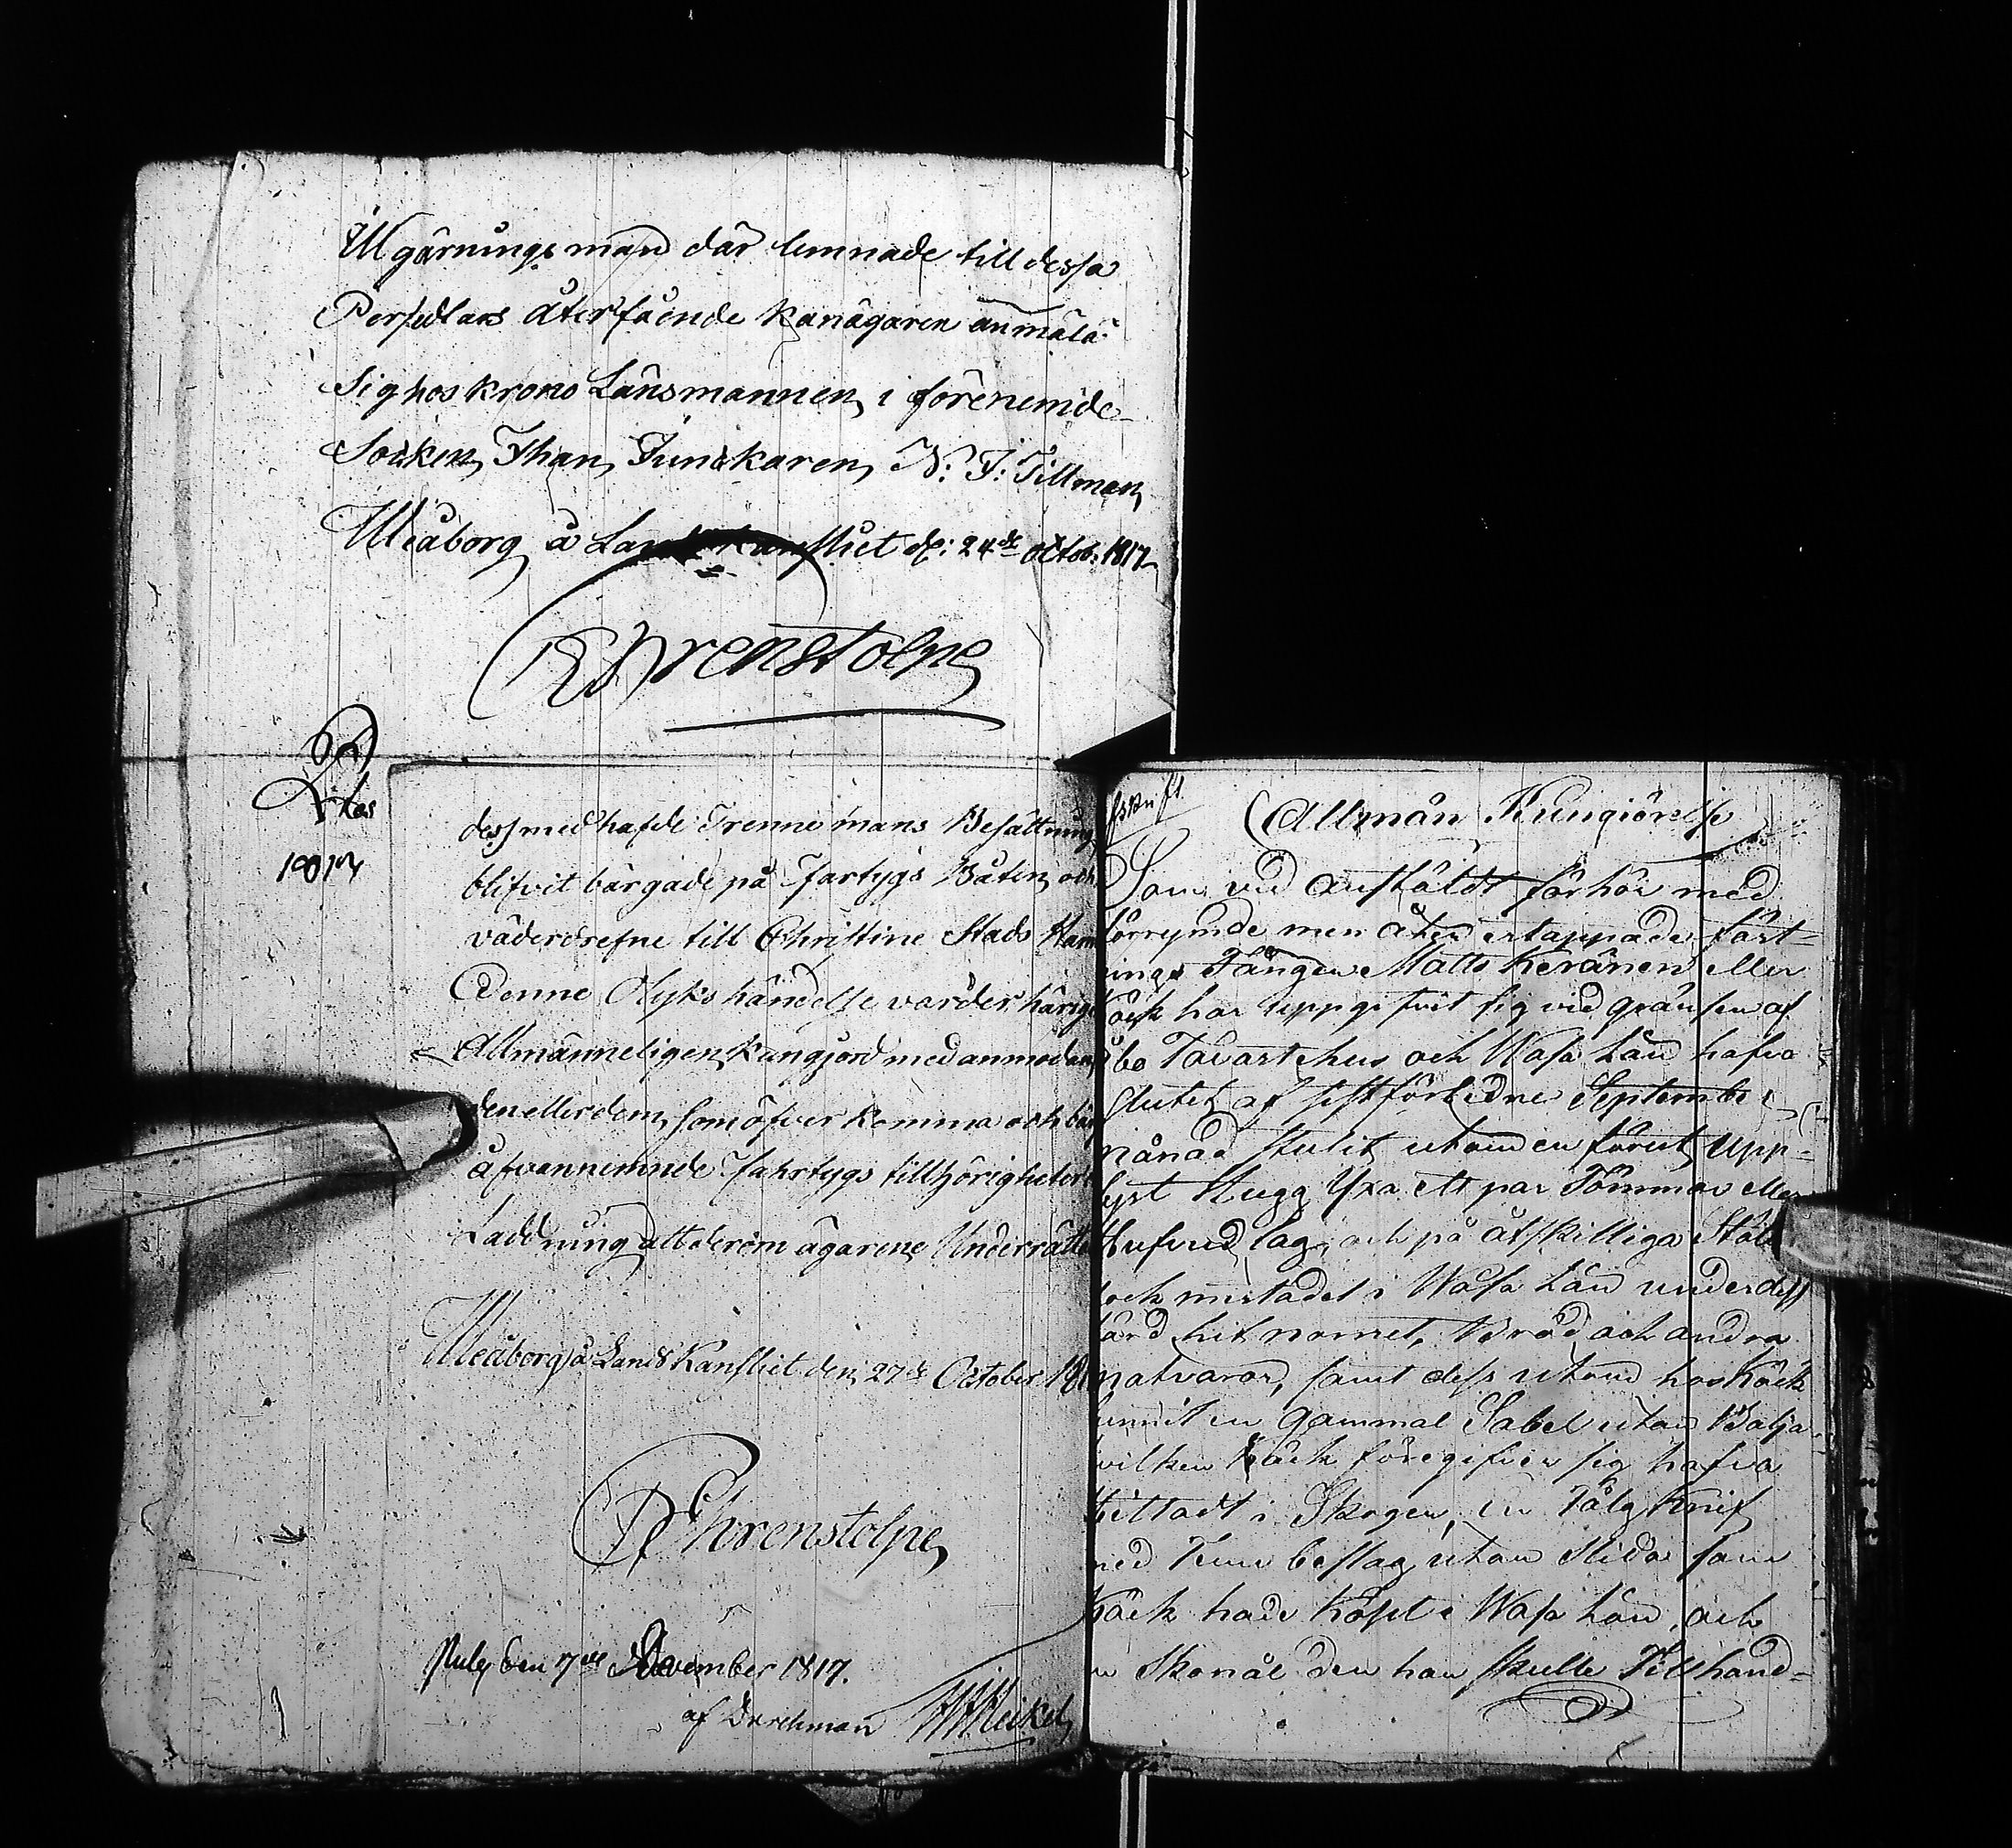 Ill gärningsman där lemnade till dessa
Persedlars återfående kan ägaren anmäla
sig hos Krono Länsmannen i förenemde
Socken Johan Junckaren N: J: Tillman
Uleåborg å Lands Kansliet d: 24de Octob: 1817
Ehrenstolpe
1817
dess medhafde Trenne mans Besättning
blifvit bärgade på Fartygs Båten och
väderdrefne till Christine Stads Ham
Denne Olyks händelse varder härig
Allmänneligen kungjord med anmodan
den eller dem som öfver komma och bär
åfvannemnde Fahrtygs tillhörigheter
Laddning att derom ägarene Underrätta
Uleåborg å Lands Kansliet den 27de October 18
Ehrenstolpe
Puls den 7de November 1817.
af
Allmän Kungiörelse
Som vid anstäldt förhör med
förrymde men åter ertappade fäst-
nings Fången Matts Keränen eller
Köck har uppgifvit sig vid gränsen af
Åbo Tavastehus och Wasa Län hafva
slutet af sistförledne Septembe
månad stulit utom den förut upp-
lyst Hugg Yxa ett par Tömmar eller
Hufvudlag, och på åtskilliga Stäl
ock mistadel i Wasa Län under dess
färd hit norret, Bröd och andra
matvaror, samt dess utom hos Köck
funnit en gammal Sabel utan Balja
vilken Köck föregifver sig hafva
hittadt i Skogen, en Tälg Knif
med Tenn beslag utan slida som
Köck hade Köpt i Wasa Län, och
en Skonål den han skulle Tillhand-